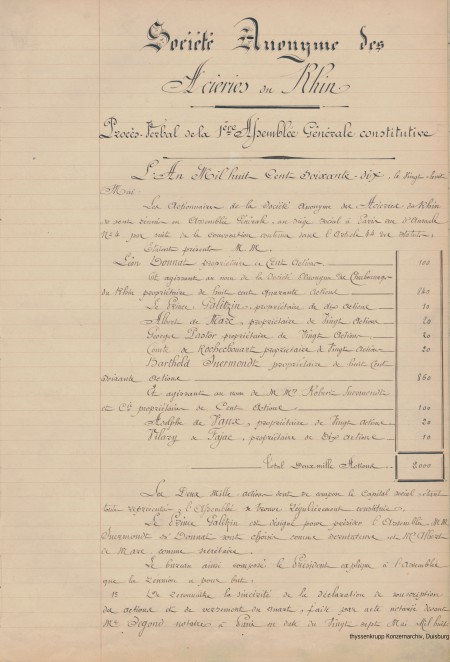 Société Anonyme des
Aciéries du Rhin
Procès-Verbal de la 1ère Assemblée Générale constitutive
L'An Mil huit Cent Soixante-dix, le Vingt
Mai
Les Actionnaires de la Société Anonyme des Aciéries du Rhin
se sont réunis en Assemblée Générale, au siège social à Paris
No 4 par suite de la convocation contenue dans l'Article 44 des Statuts,
Étaient présents M.M.
Léon Donnat propriétaire de Cent Actions 100
Et agissant au nom de la Société Anonyme des Charbonnages
du Rhin propriétaire de huit cent quarante actions 840
Le Prince Galitzin, propriétaire de dix actions 10
Albert de Marx, propriétaire de Vingt Actions 20
George Pastor propriétaire de Vingt Actions 20
Comte de Rochechouart propriétaire de Vingt Actions 20
Barthold Suermondt propriétaire de huit Cent
soixante actions 860
Et agissant au nom de M.M. Robert Suermondt
et Cie propriétaires de Cent Actions 100
Adolphe de Vaux, propriétaire de Vingt actions 20
Vilain de propriétaire de Dix actions 10
Total Deux mille Actions 2000
Les Deux Mille actions dont se compose le Capital social étant
toutes représentées, l'Assemblée se trouve régulièrement constituée.
Le Prince Galitzin est désigné pour présider l'Assemblée, M.M.
Suermondt & Donnat sont choisis comme scrutateurs et Mr Albert
de Marx comme secrétaire.
Le bureau ainsi composé, le Président explique à l'Assemblée
que la réunion a pour but:
1o De reconnaître la sincérité de la déclaration de souscription
des actions et de versement du quart, faite par acte notarié devant
Me Segond notaire à Paris en date du Vingt sept Mai Mil huit
thyssenkrupp Konzernarchiv, Duisburg